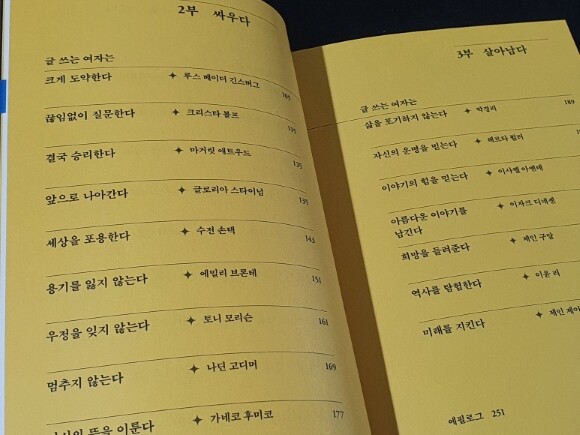 2부 싸우다
글 쓰는 여자는
크게 도약한다 ✦ 루스 베이더 긴스버그 105
끊임없이 질문한다 ✦ 크리스타 볼프
결국 승리한다 ✦ 마거릿 애트우드 125
앞으로 나아간다 ✦ 글로리아 스타이넘 135
세상을 포용한다 ✦ 수전 손택 143
용기를 잃지 않는다 ✦ 에밀리 브론테 151
우정을 잊지 않는다 ✦ 토니 모리슨 161
멈추지 않는다 ✦ 나딘 고디머 169
뜻을 이룬다 ✦ 가네코 후미코 177
3부 살아남다
글 쓰는 여자는
삶을 포기하지 않는다 ✦ 박경리 189
자신의 운명을 믿는다 ✦ 헤르타 뮐러
이야기의 힘을 믿는다 ✦ 이사벨 아옌데
아름다운 이야기를
남긴다 ✦ 이자크 디네센
희망을 들려준다 ✦ 제인 구달
역사를 탐험한다 ✦ 이윤 리
미래를 지킨다 ✦ 제인
에필로그 251